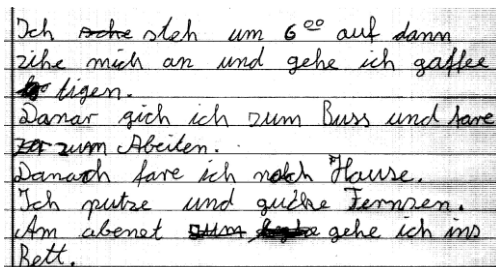 Ich steh um 6⁰⁰ auf dann
zihe mich an und gehe ich gaffee
tigen.
Danar gich ich zum Buss und fare
zum Abeiten.
Danach fare ich nach Hause.
Ich putze und gucke Fernzen.
Am abenet gehe ich ins
Bett.